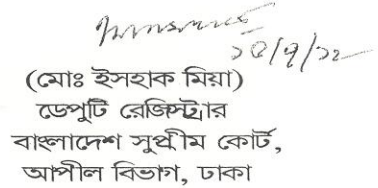 ১৫/৭/১২
(মোঃ ইসহাক মিয়া)
ডেপুটি রেজিস্ট্রার
বাংলাদেশ সুপ্রীম কোর্ট,
আপীল বিভাগ, ঢাকা